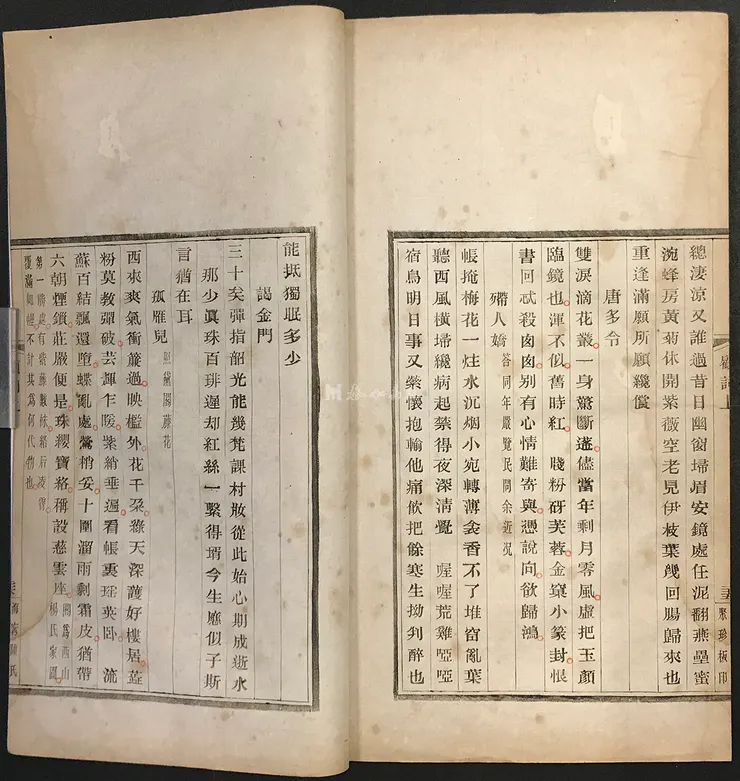 總淒涼又誰過昔日幽窗埽眉安鏡處任泥翻燕壘蜜
涴蜂房黃菊休開紫薇空老見伊枝葉幾回腸歸來也
重逢滿願所願纔償
唐多令
雙淚滴花叢一身驚斷蓬儘當年剩月零風虛把玉顏
臨鏡也渾不似舊時紅 牋粉研芙蓉金窠小篆封恨
書回忒殺匆匆別有心情難寄與憑說向欲歸鴻
殢人嬌 答同年嚴覽民問余近況
帳掩梅花一炷水沉烟小宛轉薄衾香不了堆窗亂葉
聽西風橫埽纔病起禁得夜深清覺 喔喔荒雞啞啞
宿鳥明日事又縈懷抱輸他痛飲把餘寒生拗判醉也
聚珍板印
能抵獨眠多少
謁金門
三十矣彈指韶光能幾梵課村妝從此始心期成逝水
那少眞珠百琲遲却紅絲一繫得壻今生應似子斯
言猶在耳
孤雁兒 黛閣藤花
西來爽氣衝簾過映檻外花千朶綠天深護好樓居
粉莫教彈破芸輝乍暖紫綃垂遍看帳裏瑤英卧 流
蘇百結飄還墮蝶亂處鶯梢妥十圍溜雨剩霜皮猶帶
六朝煙鎖莊嚴便是珠纓寶絡稱設慈雲座 閣爲西山楊氏家園
第一勝處有紫藤數株絡石凌霄
覆滿如幄不計其爲何代物也